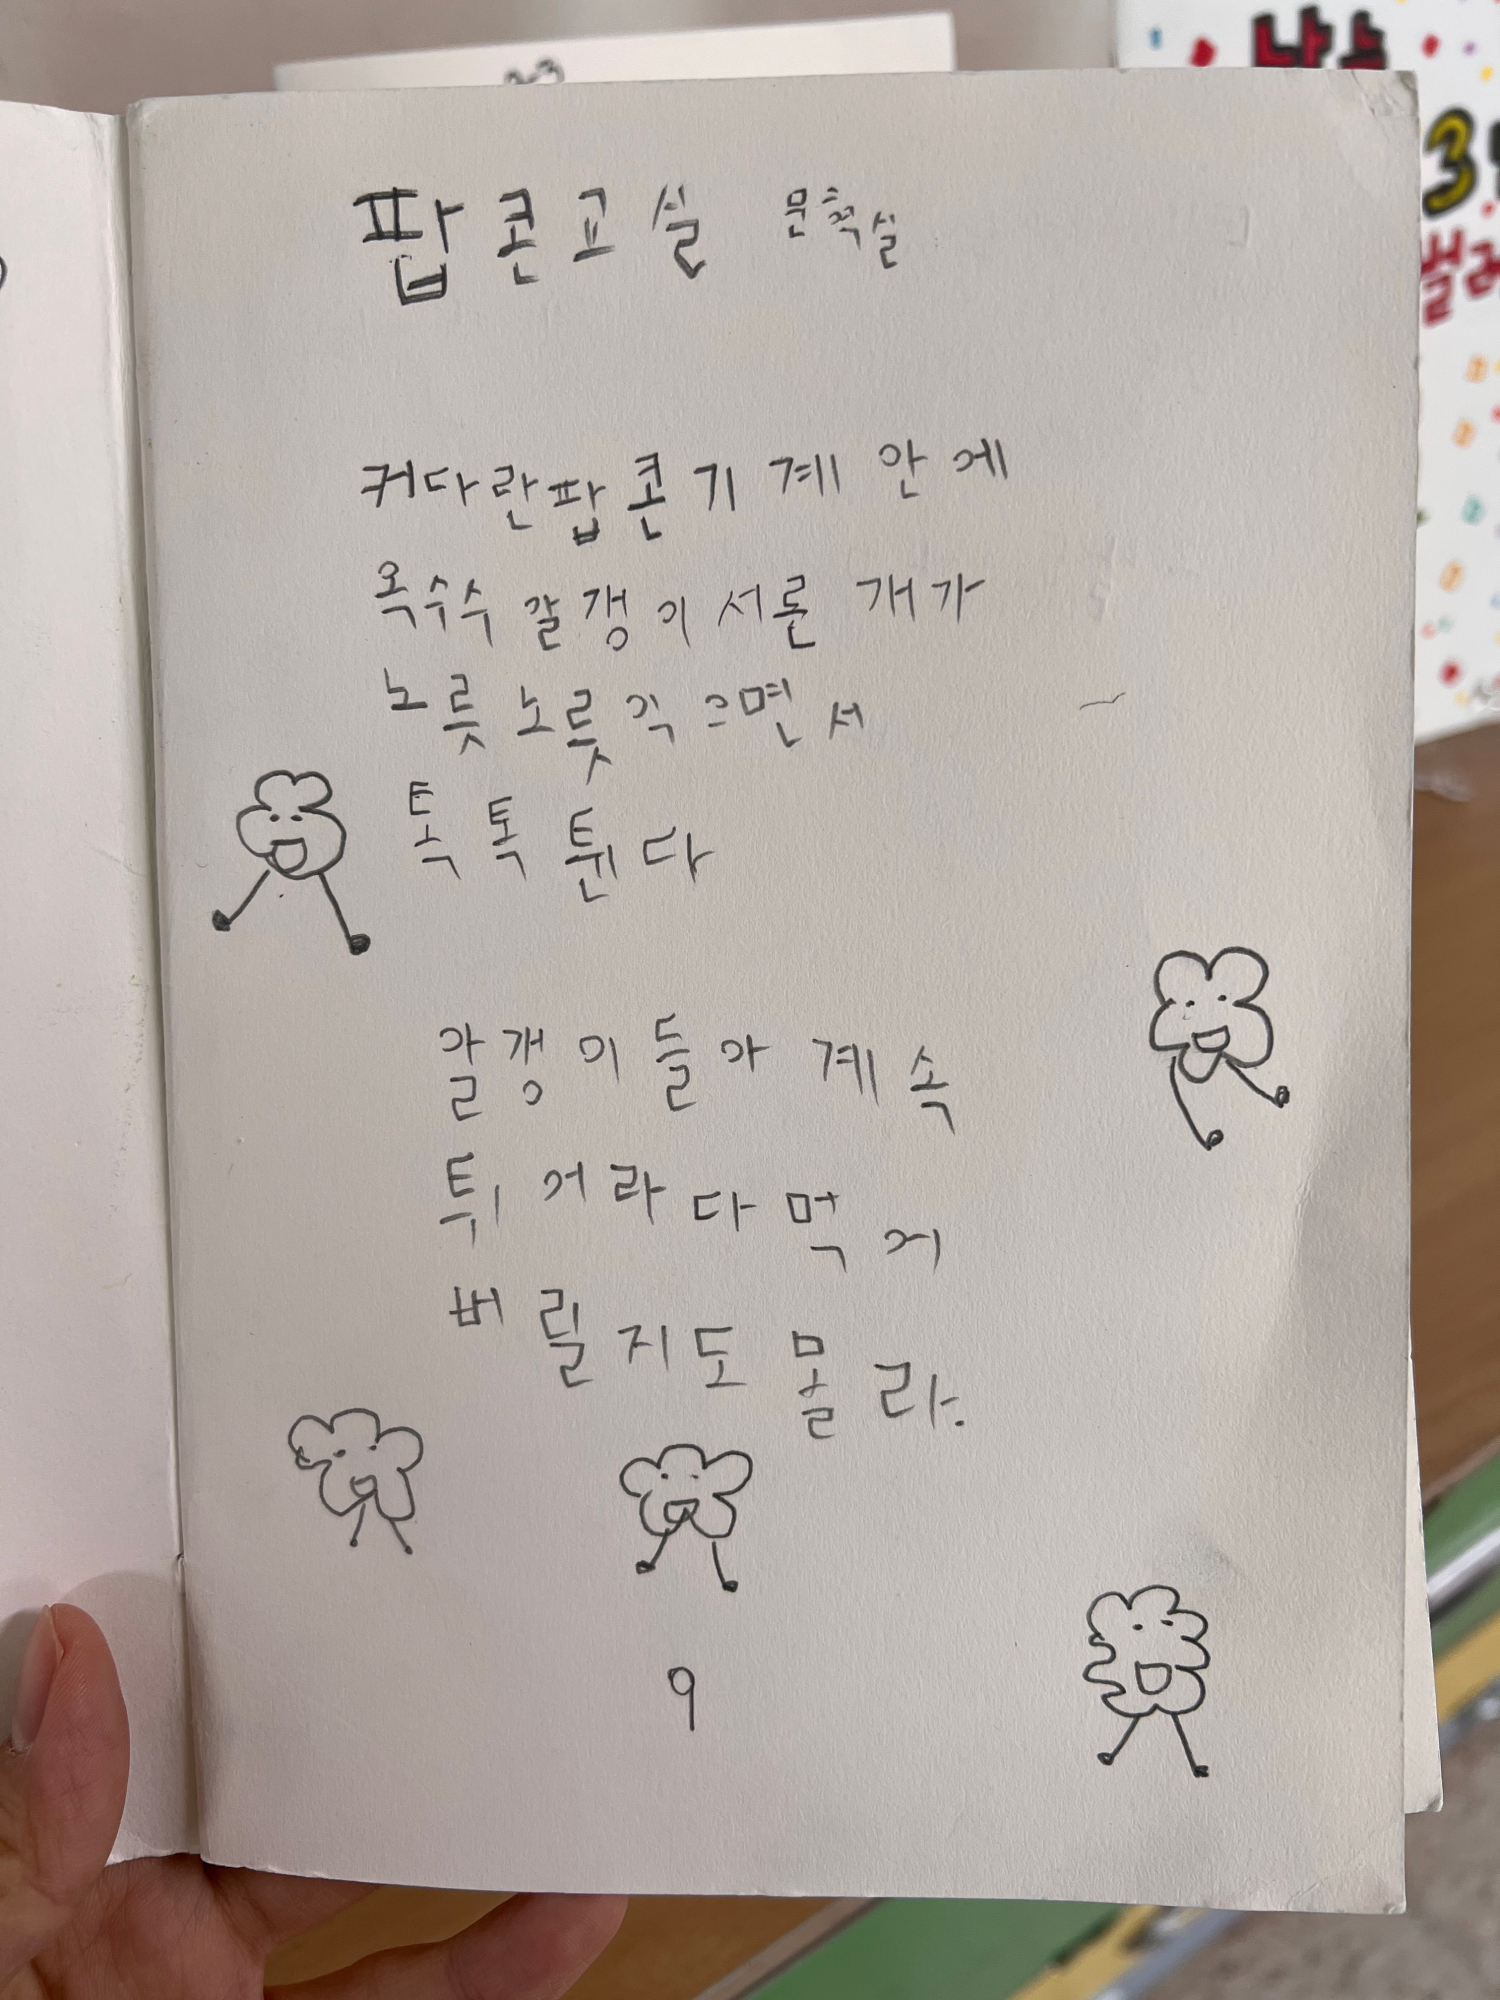 팝콘교실 문현실
커다란 팝콘 기계 안에
옥수수 알갱이 서른 개가
노릇노릇 익으면서
톡톡 튄다
알갱이들아 계속
튀어라 다 먹어
버릴지도 몰라.
9